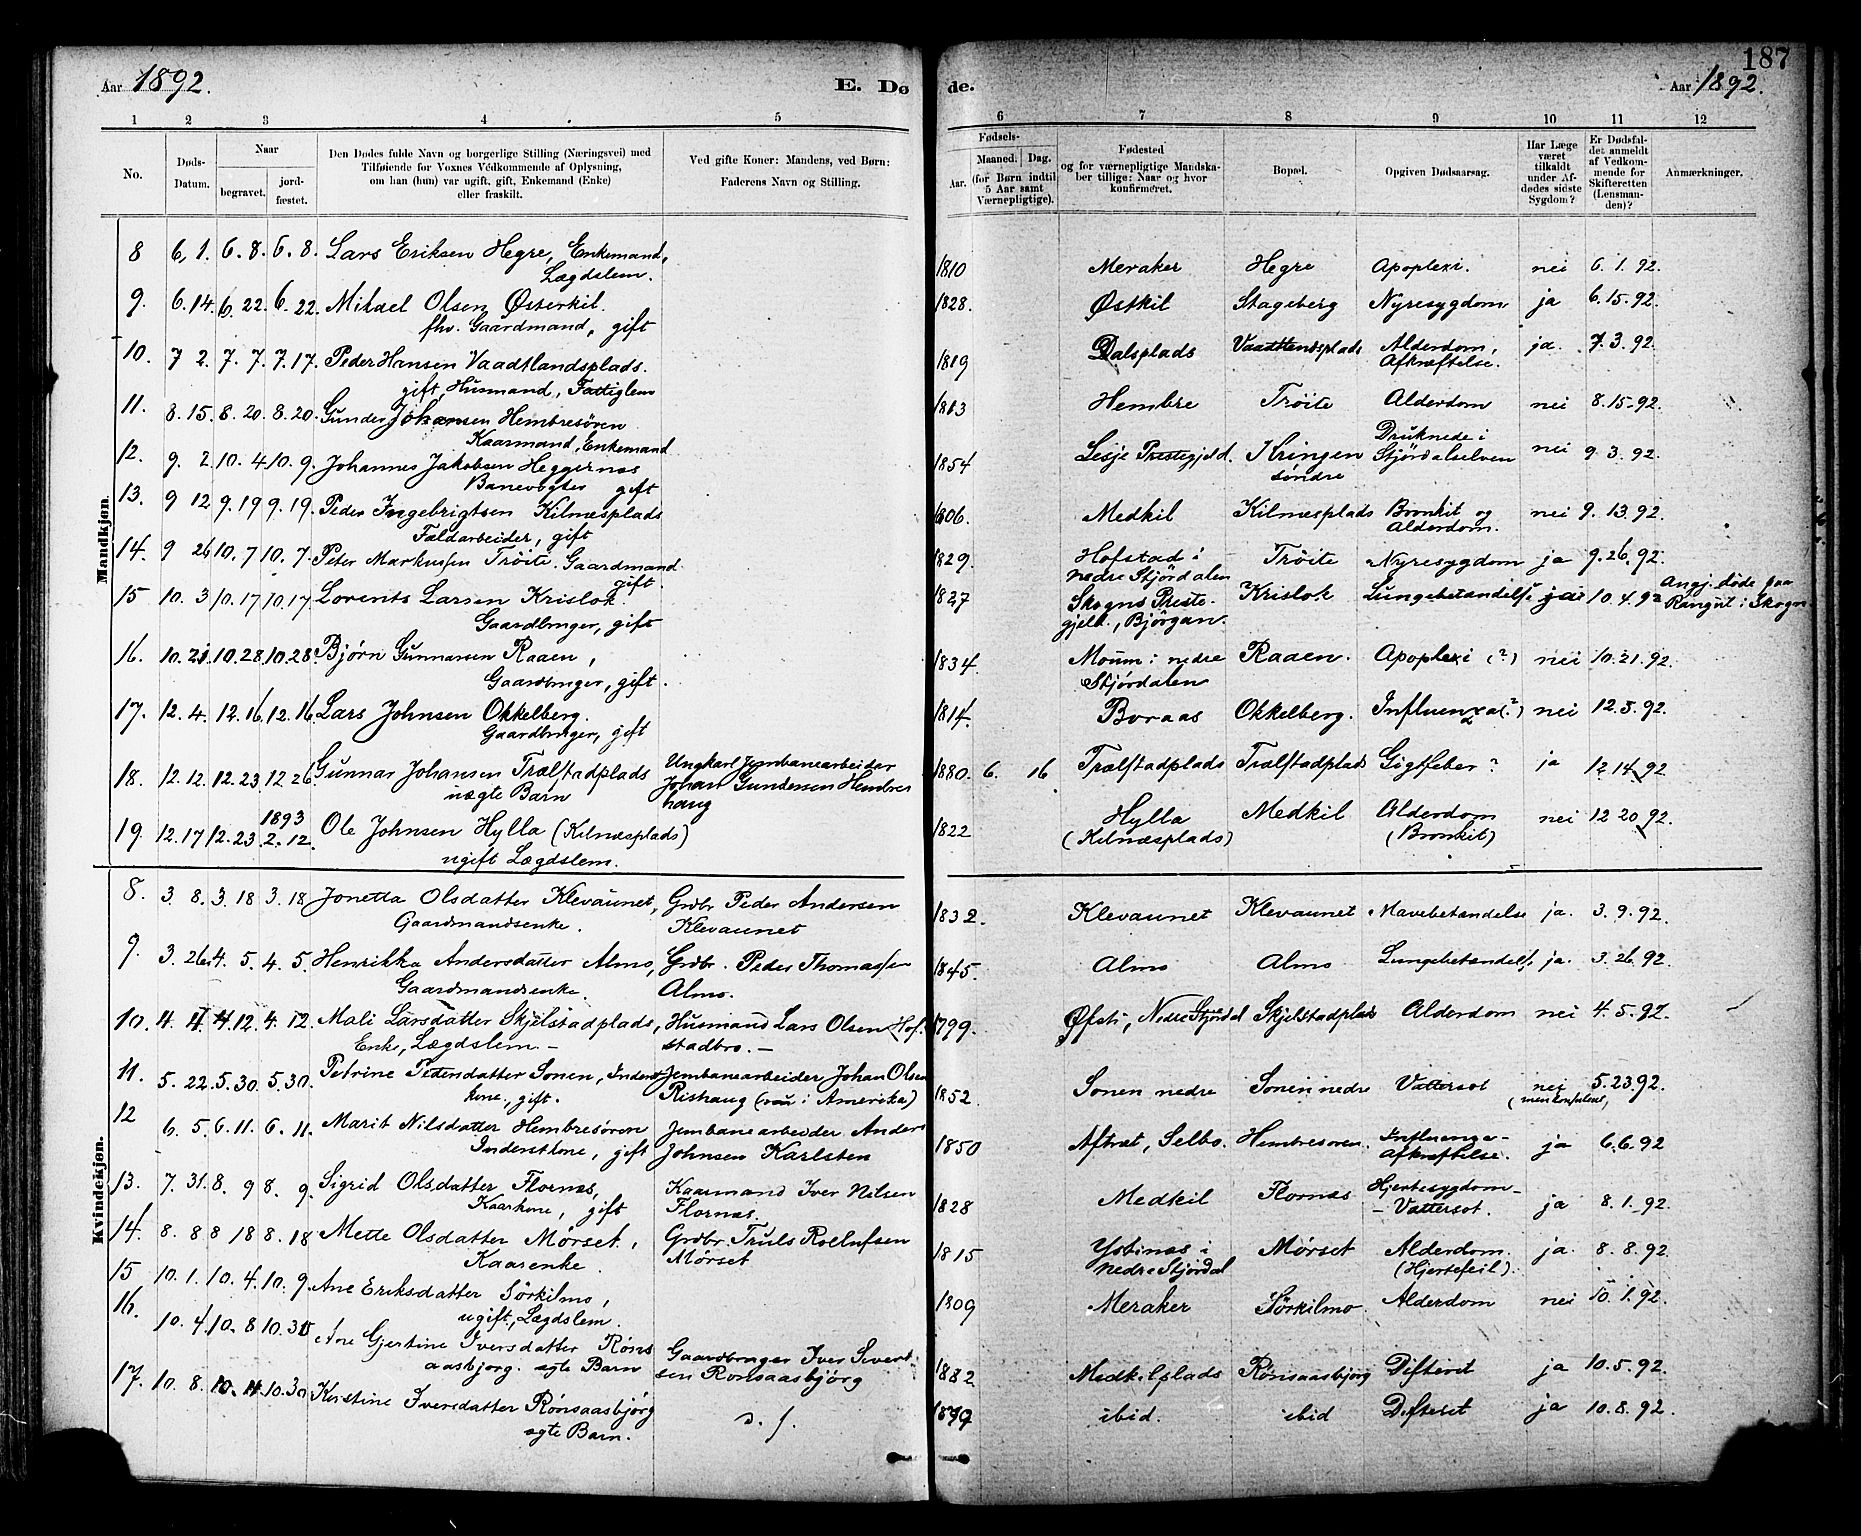 187
Aar 1892.
E. Dø
de.
Aar 1892.
1 2 3 4 5 6 7 8 9 10 11 12
No.
Døds-
Datum.
Naar
begravet.
jord-
fæstet.
Den Dødes fulde Navn og borgerlige Stilling (Næringsvei) med
Tilføiende for Voxnes Vedkommende af Oplysning,
om han (hun) var ugift, gift, Enkemand (Enke)
eller fraskilt.
Ved gifte Koner: Mandens, ved Børn:
Faderens Navn og Stilling.
Fødsels-
Aar.
Maaned. Dag.
(for Børn indtil
5 Aar samt
Værnepligtige).
Fødested
og for værnepligtige Mandska-
ber tillige: Naar og hvor
konfirmeret.
Bopæl.
Opgiven Dødsaarsag.
Har Læge
været
tilkaldt
under Af-
dødes sidste
Sygdom?
Er Dødsfal-
det anmeldt
af Vedkom-
mende for
Skifteretten
(Lensman-
den)?
Anmærkninger.
Mandkjøn.
8 6, 1. 6. 8. 6. 8. Lars Eriksen Hegre, Enkemand, 1810 Meraker Hegre Apoplexi. nei 6. 1. 92.
Lægdslem.
9. 6. 14. 6. 22. 6. 22. Mikael Olsen Østerkil. 1828. Østkil Stageberg Nyresygdom ja 6. 15. 92.
fhv. Gaardmand, gift
10. 7 2. 7. 7. 7. 17. Peder Hansen Vaadtlandsplads. 1819 Dalsplads Vaadtlandsplads Alderdom, ja. 7. 3. 92.
gift, Husmand, Fattiglem Afkræftelse.
11. 8. 15. 8. 20. 8. 20. Gunder Johansen Hembresören 1813 Hembre Tröite Alderdom nei 8. 15. 92.
Kaarmand, Enkemand
12. 9. 2. 10. 4. 10. 9. Johannes Jakobsen Heggernæs 1854 Lesje Prestegjeld. Kringen Druknede i nei 9. 3. 92.
Banevogter gift söndre Stjördalselven
13. 9 12. 9. 19. 9. 19. Peder Ingebrigtsen Kilnæsplads 1806. Medkil Kilnæsplads Bronkit og nei 9. 13. 92.
gift Alderdom.
14. 9 26. 10. 7. 10. 7. Peter Markussen Tröite. Gaardmand 1829. Hofstad i Tröite Nyresygdom ja 9. 26. 92.
gift. nedre Stjördalen
15 10. 3 10. 17. 10. 17. Lorents Larsen Krislok. 1827 Skogns Preste- Krislok Lungebetændelse ja 10. 4. 92 Angj. døde paa
Gaardbruger, gift gjeld., Bjørgan. i Skogn
16. 10. 21. 10. 28. 10. 28. Bjørn Gunnarsen Raaen, 1834. Moum i nedre Raaen. Apoplexi (?) nei 10. 21. 92.
Gaardbruger, gift. Stjördalen
17. 12. 4. 12. 16. 12. 16. Lars Johnsen Okkelberg. 1814. Boraas Okkelberg. Influenza(?) nei 12. 5. 92.
Gaardbruger, gift
18. 12. 12. 12. 23. 12 26. Gunnar Johansen Trælstadplads Ungkarl Jernbanearbeider 1880. 6. 16 Trælstadplads Trælstadplads Gigtfeber ? ja 12. 14. 92
uægte Barn Johan Gundersen Hembre
haug
19. 12. 17 12. 23. 1893 2. 12. Ole Johnsen Hylla (Kilnæsplads) 1822 Hylla Medkil Alderdom nei 12 20. 92.
ugift Lægdslem. (Kilnæsplads) (Bronkit)
Kvindekjøn.
8. 3. 8. 3. 18 3. 18 Jonetta Olsdatter Klevaunet, Grdbr. Peder Andersen 1832. Klevaunet Klevaunet Mavebetændelse ja. 3. 9. 92.
Gaardmandsenke. Klevaunet
9. 3. 26. 4. 5. 4. 5. Henrikka Andersdatter Almo, Grdbr. Peder Thomassen 1845. Almo Almo Lungebetændelse ja. 3. 26. 92.
Gaardmandsenke. Almo.
10. 4. 4 4. 12. 4. 12. Mali Larsdatter Skjelstadplads, Husmand Lars Olsen Hof- 1799. Øfsti, Nedre Stjördal Skjelstadplads Alderdom nei 4. 5. 92.
Enke, Lægdslem. – stadbro. –
11. 5. 22. 5. 30. 5. 30. Petrine Pedersdatter Sonen, Inderst Jernbanearbeider Johan Olsen 1852. Sonen nedre Sonen nedre Vattersot nei 5. 23. 92.
kone, gift. Rishaug (nu i Amerika)
12 6. 5. 6. 11. 6. 11. Marit Nilsdatter Hembresören Jernbanearbeider Anders 1850 Aftret, Selbo. Hembresören. Influenza- ja 6. 6. 92
Inderstkone, gift Johnsen Karlsten Afkræftelse.
13. 7. 31. 8. 9 8. 9. Sigrid Olsdatter Flornæs, Kaarmand Iver Nilsen 1828 Medkil Flornæs Hjertesygdom – ja 8. 1. 92.
Kaarkone, gift Flornæs. – Vattersot.
14. 8. 8 8 18 8. 18 Mette Olsdatter Mørset, Grdbr. Truls Rollufsen 1815 Ystines i Mørset Alderdom. ja. 8. 8. 92.
Kaarenke. Mørset nedre Stjördal (Hjertefeil).
15 10. 1. 10. 4. 10. 9. Ane Eriksdatter Sörkilmo, 1809 Meraker Sörkilmo. Alderdom nei 10. 1. 92.
ugift, Lægdslem.
16. 10. 4. 10. 8 10. 30 Ane Gjertine Iversdatter Röns Gaardbruger Iver Sivert 1882 Medkilplads Rönsaasbjörg Difterit ja 10. 5. 92.
aasbjörg. ægte Barn sen Rönsaasbjörg
17. 10. 8. 10. 11. 10. 30 Kerstine Iversdatter Rönsaasbjörg d. s. 1879 ibid. ibid Difterit ja 10. 8. 92.
ægte Barn.